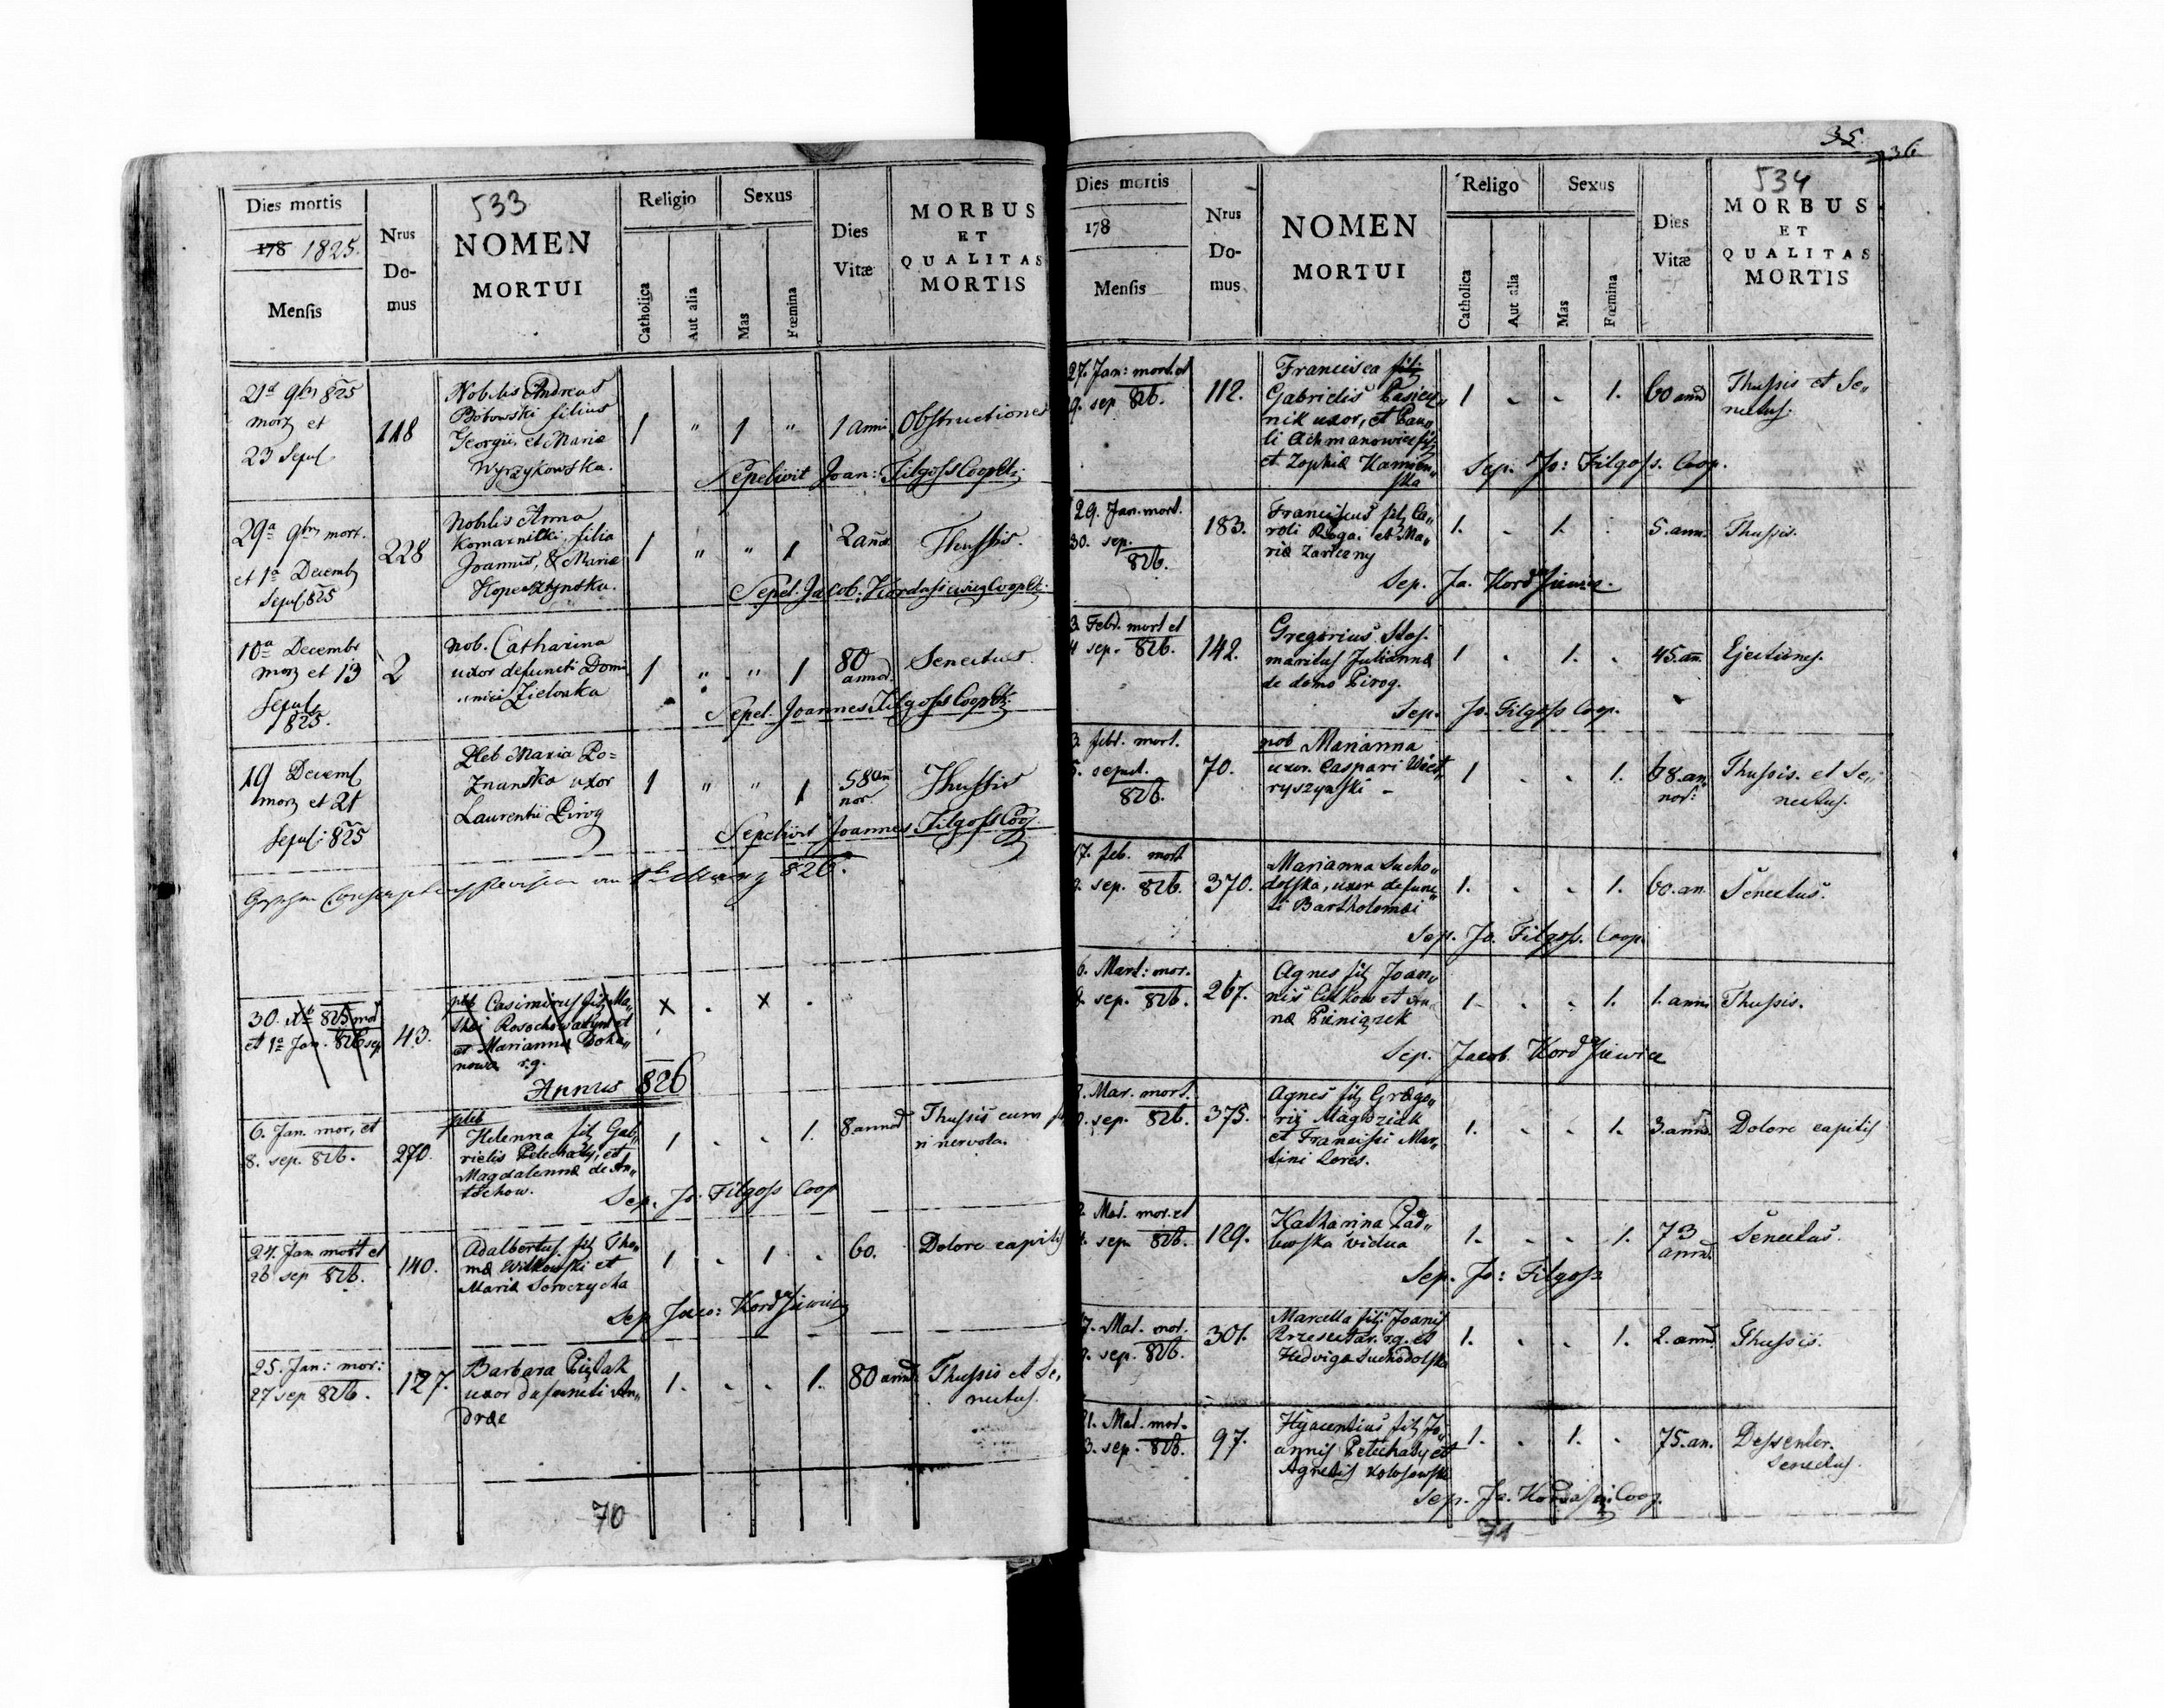 533
Dies mortis
178 1825.
Mensis
Nrus
Do-
mus
NOMEN
MORTUI
Religio
Catholica
Aut alia
Sexus
Mas
Fœmina
Dies
Vitæ
MORBUS
ET
QUALITAS
MORTIS
21a 9br 825
mort et
23 Sepul
118
Nobilis Andreas
Bobowski filius
Georgii, et Mariæ
Wyrzykowska.
1 " 1 "
1 anni
Obstructiones
Sepelivit Joan: Filgoss Cooptr:
29a 9br mort.
et 1a Decemb
Sepul 825
228
Nobilis Anna
Komarnicki, filia
Joannis, & Mariæ
1 " " 1
2 annor
Thussis.
Sepel. Jacob. Kordasiewicz Cooptr:
10a Decembr
mort et 13
Sepul
1825.
2
nob. Catharina
uxor defuncti Domi
nici Zielonka
1 " " 1
80
annor.
Senectus.
Sepel. Joannes Filgoss Cooptr:
19 Decemb
mort et 21
Sepul: 825
Pleb Maria Po=
znanska uxor
Laurentii Pirog
1 " " 1
58 an
nor.
Thussis
Sepelivit Joannes Filgoss Coop.
826.
30. Xb 825 mor
et 1a Jan. 826 sep
43.
pleb Casimirus filg Ma"
thei
et Marianna
nowa r.g.
x . x .
Annus 826
6. Jan. mor, et
8. sep. 826.
270.
pleb
Helenna filg Gab"
rielis Pelechaty, et
Magdalennæ de An"
tochow.
1 . . 1.
8. annor
Thussis cum
nervola.
Sep. Jo. Filgoss Coop
24. Jan. mort et
26 sep 826.
140.
Adalbertus filg Tho"
mæ Witkowski et
Mariæ Soroczycha
1 . 1 .
60.
Dolore capitis
Sep Jaco: Kordasiewicz
25. Jan: mor:
27 sep 826.
127.
Barbara Piętak
uxor defuncti An"
dræe
1. . . 1.
80 annor:
Thussis et Se"
nectus.
70
35.
36
534
Dies mortis
178
Mensis
Nrus
Do-
mus
NOMEN
MORTUI
Religo
Catholica
Aut alia
Sexus
Mas
Fœmina
Dies
Vitæ
MORBUS
ET
QUALITAS
MORTIS
27. Jan: mort. et
9. sep. 826.
112.
Francisca filg
Gabrielis Pasicz"
nik uxor, et Pau"
li Achmanowicz filg
et Zophiæ Kamien"
ska
1 . . 1.
60 annor
Thussis et Se"
nectus.
Sep. Jo: Filgoss. Coop.
29. Jan. mort.
30. sep.
826.
183.
Franciscus filg Ca"
roli Ryga. et Ma"
riæ Zarieczny
1. . 1. .
5. ann.
Thussis.
Sep. Ja. Kordasiewicz.
3. Febr. mort et
4 sep. 826.
142.
Gregorius Stos.
maritus Juliannæ
de domo Pirog.
1 . 1. .
45. an.
Ejectiones.
Sep. Jo. Filgoss Coop.
3. febr. mort.
5. sepul.
826.
70.
nob Marianna
uxor. Caspari Wiet"
ryszynski -
1 . . 1.
68. an
nor:
Thussis. et Se"
nectus.
17. feb. mort
9. sep. 826.
370.
Marianna Sucho"
dolska, uxor defunc"
ti Bartholomæi
1. . . 1.
60. an.
Senectus.
Sep. Jo. Filgoss. Coop.
6. Mart: mor.
8. sep. 826.
267.
Agnes filg Joan"
nis et An"
næ Pieniązek
1. . . 1.
1. anni
Thussis.
Sep. Jacob. Kordasiewicz
Mar. mort.
sep. 826.
375.
Agnes filg Grego"
rij Magdziak
et Francisci Mar"
tini
1. . . 1.
3. annor.
Dolore capitis
Mar. mor. et
sep. 826.
129.
Katharina Pad"
lewska vidua
1. . . 1.
73
annor.
Senectus.
Sep. Jo: Filgoss
7. Mar. mor.
9. sep. 826.
301.
Marcella filg: Joanis
r.g. et
Hedvigæ Suchodolska
1. . . 1.
2. annor.
Thussis.
21. Mar. mor.
3. sep. 826.
97.
Hyacentius filg Jo"
annis Pelechaty et
Agnetis
1. . 1. .
75. an.
Dessenter.
Senectus.
Sep. Ja. Coop.
71